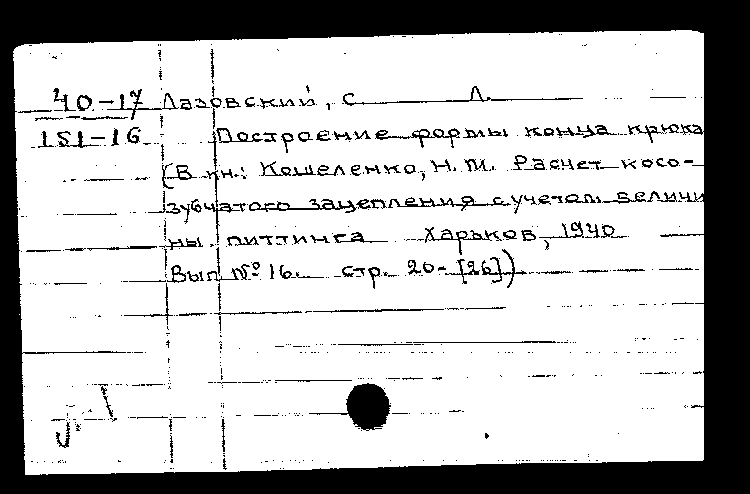 40-17 Лазовский, С Л.
151-16 Построение формы конца крюка
(В кн.: Кошеленко, Н. М. Расчет косо-
зубчатого зацепления с учетом величи
ны питтинга Харьков, 1940
Вып № 16. стр. 20-[26])